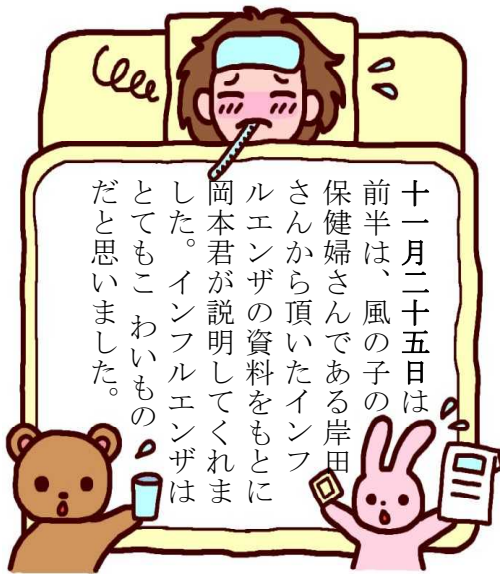 十一月二十五日は
前半は、風の子の
保健婦さんである岸田
さんから頂いたインフ
ルエンザの資料をもとに
岡本君が説明してくれま
した。インフルエンザは
とてもこ わいもの
だと思いました。